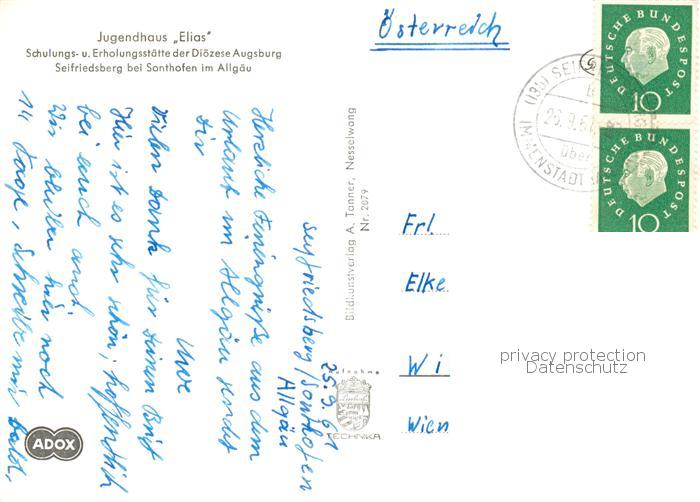 Jugendhaus „Elias"
Schulungs- u. Erholungsstätte der Diözese Augsburg
Seifriedsberg bei Sonthofen im Allgäu
Österreich
DEUTSCHE BUNDESPOST
10
DEUTSCHE BUNDESPOST
10
(13b) SEIF
26.9.61
über
IMMENSTADT
Seyfriedsberg/Sonthofen
Allgäu
25.9.61
Herzliche Feriengrüße aus dem
Urlaub im Allgäu sendet
Dir
Uwe
Vielen Dank für Deinen Brief
Hier ist es sehr schön, hoffentlich
bei euch auch.
Wir bleiben hier noch
14 Tage, Schreibe mir bald,
Bildkunstverlag A. Tanner, Nesselwang
Nr. 2079
Frl
Elke
Wi
Wien
Aufnahme
Linhof
TECHNIKA
ADOX
privacy protection
Datenschutz